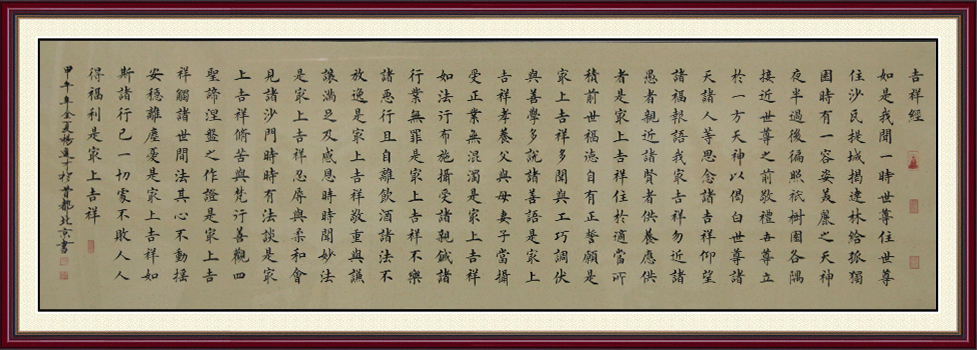 吉祥經
如是我聞一時世尊住世尊
住沙民提城揭逮林給孤獨
園時有一容姿美麗之天神
夜半過後徧照祇樹園各隅
接近世尊之前敬禮世尊立
於一方天神以偈白世尊諸
天諸人等思念諸吉祥仰望
諸福報語我㝡吉祥勿近諸
愚者親近諸賢者供養應供
者是㝡上吉祥住於適當所
積前世福德自有正誓願是
㝡上吉祥多聞與工巧調伏
與善學多說諸善語是㝡上
吉祥孝養父與母妻子當攝
受正業無混濁是㝡上吉祥
如法行布施攝受諸親諸
行業無罪是㝡上吉祥不樂
諸惡行且自離飲酒諸法不
放逸是㝡上吉祥敬重與謙
讓滿足及感恩時時聞妙法
是㝡上吉祥忍辱與柔和會
見諸沙門時時有法談是㝡
上吉祥脩苦與梵行善觀四
聖諦涅盤之作證是㝡上吉
祥觸諸世間法其心不動搖
安穩離塵憂是㝡上吉祥如
斯諸行已一切處不敗人人
得福利是㝡上吉祥
甲午年夏楊進才於首都北京書